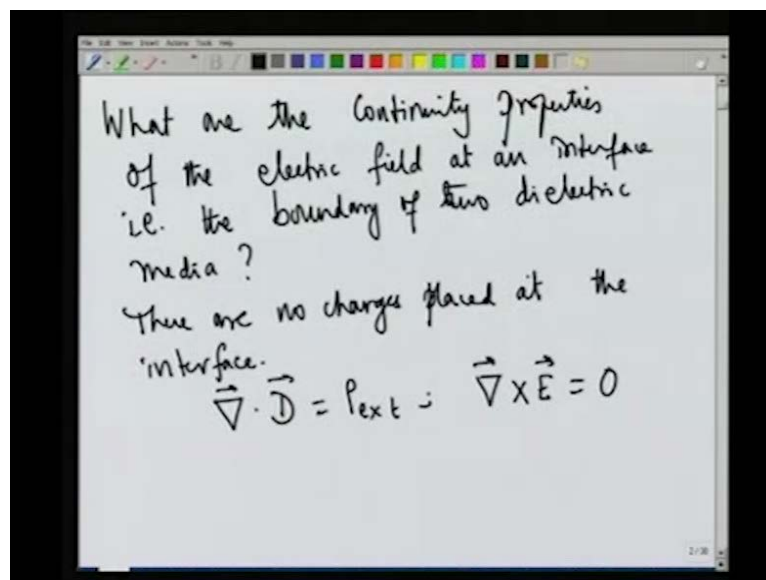 File Edit View Insert Actions Tools Help
What are the Continuity Properties
Of the electric field at an interface
i.e. the boundary of two dielectric
media ?
There are no charges placed at the
interface.
∇⃗ · D⃗ = ρext ; ∇⃗ × E⃗ = 0
2/30